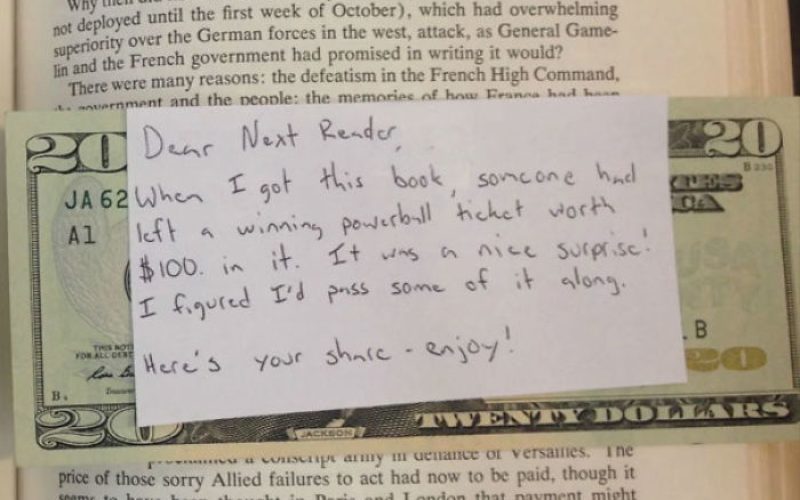 Why
not deployed until the first week of October), which had overwhelming
superiority over the German forces in the west, attack, as General Game-
lin and the French government had promised in writing it would?
There were many reasons: the defeatism in the French High Command,
government and the people; the memories of how France had been
20
20
JA 62
B
A1
Dear Next Reader,
When I got this book, someone had
left a winning powerball ticket worth
$100. in it. It was a nice surprise!
I figured I'd pass some of it along.
Here's your share - enjoy!
THIS NOT
FOR ALL DEBT
B
20
20
JACKSON
TWENTY DOLLARS
a conscript army in defiance of Versailles. The
price of those sorry Allied failures to act had now to be paid, though it
thought in Paris and London that payment might